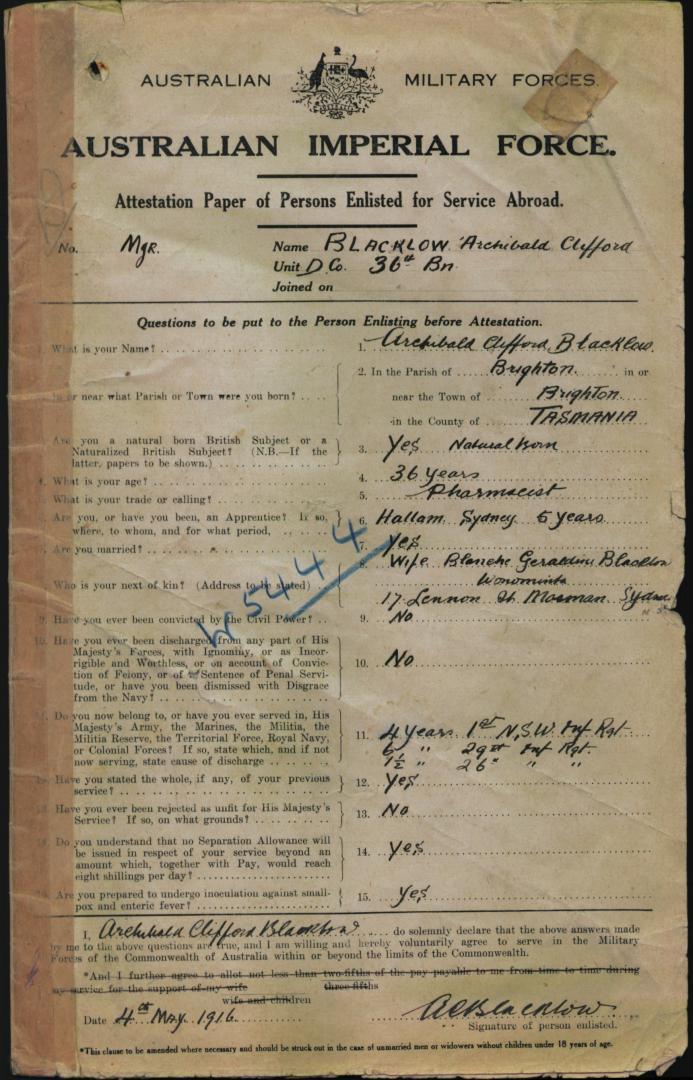 AUSTRALIAN MILITARY FORCES.
AUSTRALIAN IMPERIAL FORCE.
Attestation Paper of Persons Enlisted for Service Abroad.
No. Mjr. Name BLACKLOW Archibald Clifford
Unit D Co. 36th Bn
Joined on
Questions to be put to the Person Enlisting before Attestation.
What is your Name? 1. Archibald Clifford Blacklow
2. In the Parish of Brighton in or
or near what Parish or Town were you born? near the Town of Brighton
in the County of TASMANIA
Are you a natural born British Subject or a
Naturalized British Subject? (N.B.—If the 3. Yes Natural Born
latter, papers to be shown.)
4. What is your age? 4. 36 years
What is your trade or calling? 5. Pharmacist
Are you, or have you been, an Apprentice? If so, 6. Hallam Sydney 5 years
where, to whom, and for what period,
Are you married? 7. Yes
8. Wife Blanche Geraldine Blacklow
Who is your next of kin? (Address to be stated)
17 Lennon St Mosman Sydney
W5444
9. Have you ever been convicted by the Civil Power? 9. No
10. Have you ever been discharged from any part of His
Majesty's Forces, with Ignominy, or as Incor-
rigible and Worthless, or on account of Convic-
tion of Felony, or of a Sentence of Penal Servi- 10. No
tude, or have you been dismissed with Disgrace
from the Navy?
Do you now belong to, or have you ever served in, His
Majesty's Army, the Marines, the Militia, the 11. 4 years 1st N.S.W Inf Rgt
Militia Reserve, the Territorial Force, Royal Navy, 6 " 29th Inf Rgt.
or Colonial Forces? If so, state which, and if not 1½ " 26th " "
now serving, state cause of discharge
Have you stated the whole, if any, of your previous 12. Yes
service?
Have you ever been rejected as unfit for His Majesty's 13. No
Service? If so, on what grounds?
Do you understand that no Separation Allowance will
be issued in respect of your service beyond an 14. Yes
amount which, together with Pay, would reach
eight shillings per day?
Are you prepared to undergo inoculation against small- 15. Yes
pox and enteric fever?
I, Archibald Clifford Blacklow do solemnly declare that the above answers made
by me to the above questions are true, and I am willing and hereby voluntarily agree to serve in the Military
Forces of the Commonwealth of Australia within or beyond the limits of the Commonwealth.
*And I further agree to allot not less than two-fifths of the pay payable to me from time to time during
my service for the support of my wife three-fifths
wife and children
Date 4th May 1916 ACBlacklow
Signature of person enlisted.
*This clause to be amended where necessary and should be struck out in the case of unmarried men or widowers without children under 18 years of age.